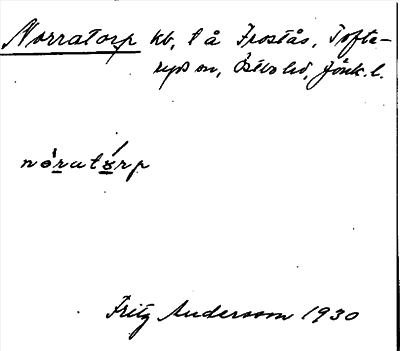 Norratorp kb, l å Frostås, Tofte-
ryd sn, Östbo hd, Jönk. l.
nòratórp
Fritz Andersson 1930